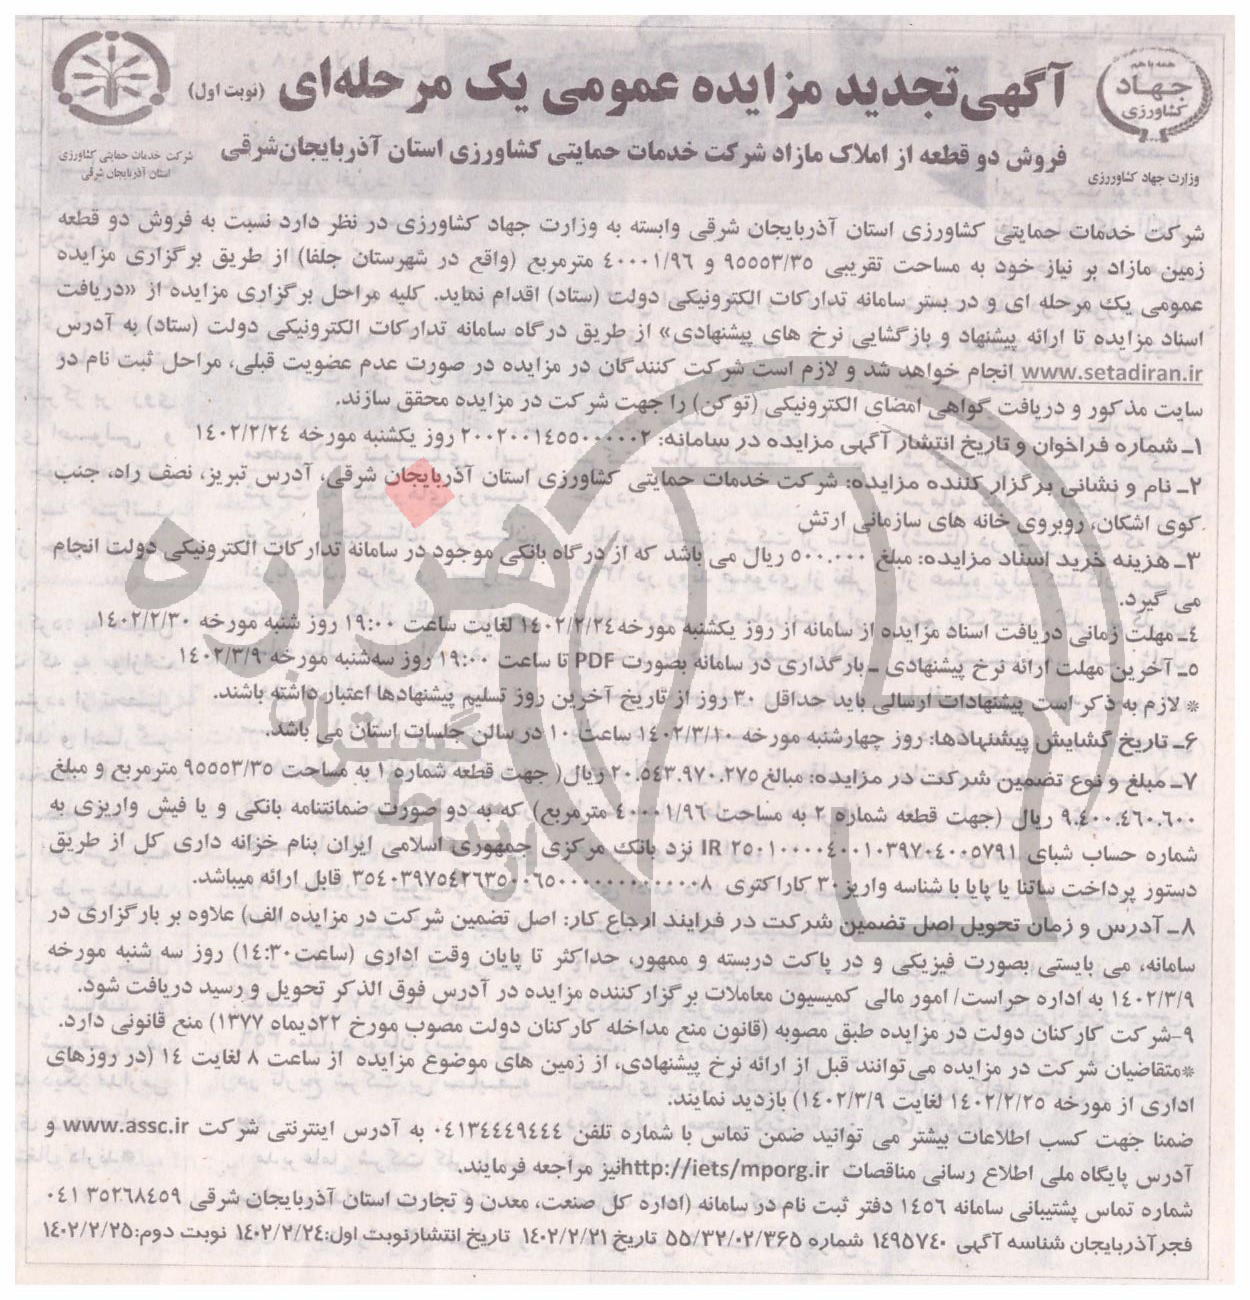 همه با هم
جهاد
کشاورزی
وزارت جهاد کشاورزی
آگهی تجدید مزایده عمومی یک مرحله‌ای (نوبت اول)
فروش دو قطعه از املاک مازاد شرکت خدمات حمایتی کشاورزی استان آذربایجان‌شرقی
شرکت خدمات حمایتی کشاورزی
استان آذربایجان شرقی
شرکت خدمات حمایتی کشاورزی استان آذربایجان شرقی وابسته به وزارت جهاد کشاورزی در نظر دارد نسبت به فروش دو قطعه
زمین مازاد بر نیاز خود به مساحت تقریبی ۹۵۵۵۳/۳۵ و ۴۰۰۰۱/۹۶ مترمربع (واقع در شهرستان جلفا) از طریق برگزاری مزایده
عمومی یک مرحله ای و در بستر سامانه تدارکات الکترونیکی دولت (ستاد) اقدام نماید. کلیه مراحل برگزاری مزایده از «دریافت
اسناد مزایده تا ارائه پیشنهاد و بازگشایی نرخ های پیشنهادی» از طریق درگاه سامانه تدارکات الکترونیکی دولت (ستاد) به آدرس
www.setadiran.ir انجام خواهد شد و لازم است شرکت کنندگان در مزایده در صورت عدم عضویت قبلی، مراحل ثبت نام در
سایت مذکور و دریافت گواهی امضای الکترونیکی (توکن) را جهت شرکت در مزایده محقق سازند.
۱ـ شماره فراخوان و تاریخ انتشار آگهی مزایده در سامانه: ۲۰۰۲۰۰۱۴۵۵۰۰۰۰۰۲ روز یکشنبه مورخه ۱۴۰۲/۲/۲۴
۲ـ نام و نشانی برگزار کننده مزایده: شرکت خدمات حمایتی کشاورزی استان آذربایجان شرقی، آدرس تبریز، نصف راه، جنب
کوی اشکان، روبروی خانه های سازمانی ارتش
۳ـ هزینه خرید اسناد مزایده: مبلغ ۵۰۰.۰۰۰ ریال می باشد که از درگاه بانکی موجود در سامانه تدارکات الکترونیکی دولت انجام
می گیرد.
۴ـ مهلت زمانی دریافت اسناد مزایده از سامانه از روز یکشنبه مورخه ۱۴۰۲/۲/۲۴ لغایت ساعت ۱۹:۰۰ روز شنبه مورخه ۱۴۰۲/۲/۳۰
۵ـ آخرین مهلت ارائه نرخ پیشنهادی ـ بارگذاری در سامانه بصورت PDF تا ساعت ۱۹:۰۰ روز سه‌شنبه مورخه ۱۴۰۲/۳/۹
* لازم به ذکر است پیشنهادات ارسالی باید حداقل ۳۰ روز از تاریخ آخرین روز تسلیم پیشنهادها اعتبار داشته باشند.
۶ـ تاریخ گشایش پیشنهادها: روز چهارشنبه مورخه ۱۴۰۲/۳/۱۰ ساعت ۱۰ در سالن جلسات استان می باشد.
۷ـ مبلغ و نوع تضمین شرکت در مزایده: مبالغ ۲۰.۵۴۳.۹۷۰.۲۷۵ ریال( جهت قطعه شماره ۱ به مساحت ۹۵۵۵۳/۳۵ مترمربع و مبلغ
۹.۴۰۰.۴۶۰.۶۰۰ ریال (جهت قطعه شماره ۲ به مساحت ۴۰۰۰۱/۹۶ مترمربع) که به دو صورت ضمانتنامه بانکی و یا فیش واریزی به
شماره حساب شبای IR ۲۵۰۱۰۰۰۰۴۰۰۱۰۳۹۷۰۴۰۰۵۷۹۱ نزد بانک مرکزی جمهوری اسلامی ایران بنام خزانه داری کل از طریق
دستور پرداخت ساتنا یا پایا با شناسه واریز ۳۰ کاراکتری ۳۵۴۰۳۹۷۵۴۲۶۳۵۰۰۶۵۰۰۰۰۰۰۰۰۰۰۰۰۸ قابل ارائه میباشد.
۸ـ آدرس و زمان تحویل اصل تضمین شرکت در فرایند ارجاع کار: اصل تضمین شرکت در مزایده الف) علاوه بر بارگزاری در
سامانه، می بایستی بصورت فیزیکی و در پاکت دربسته و ممهور، حداکثر تا پایان وقت اداری (ساعت ۱۴:۳۰) روز سه شنبه مورخه
۱۴۰۲/۳/۹ به اداره حراست/ امور مالی کمیسیون معاملات برگزار کننده مزایده در آدرس فوق الذکر تحویل و رسید دریافت شود.
۹-شرکت کارکنان دولت در مزایده طبق مصوبه (قانون منع مداخله کارکنان دولت مصوب مورخ ۲۲دیماه ۱۳۷۷) منع قانونی دارد.
*متقاضیان شرکت در مزایده می‌توانند قبل از ارائه نرخ پیشنهادی، از زمین های موضوع مزایده از ساعت ۸ لغایت ۱۴ (در روزهای
اداری از مورخه ۱۴۰۲/۲/۲۵ لغایت ۱۴۰۲/۳/۹) بازدید نمایند.
ضمنا جهت کسب اطلاعات بیشتر می توانید ضمن تماس با شماره تلفن ۰۴۱۳۴۴۴۹۴۴۴ به آدرس اینترنتی شرکت www.assc.ir و
آدرس پایگاه ملی اطلاع رسانی مناقصات http://iets/mporg.irنیز مراجعه فرمایند.
شماره تماس پشتیبانی سامانه ۱۴۵۶ دفتر ثبت نام در سامانه (اداره کل صنعت، معدن و تجارت استان آذربایجان شرقی ۳۵۲۶۸۴۵۹ ۰۴۱
فجرآذربایجان شناسه آگهی ۱۴۹۵۷۴۰ شماره ۵۵/۳۲/۰۲/۳۶۵ تاریخ ۱۴۰۲/۲/۲۱ تاریخ انتشارنوبت اول:۱۴۰۲/۲/۲۴ نوبت دوم:۱۴۰۲/۲/۲۵
هزاره